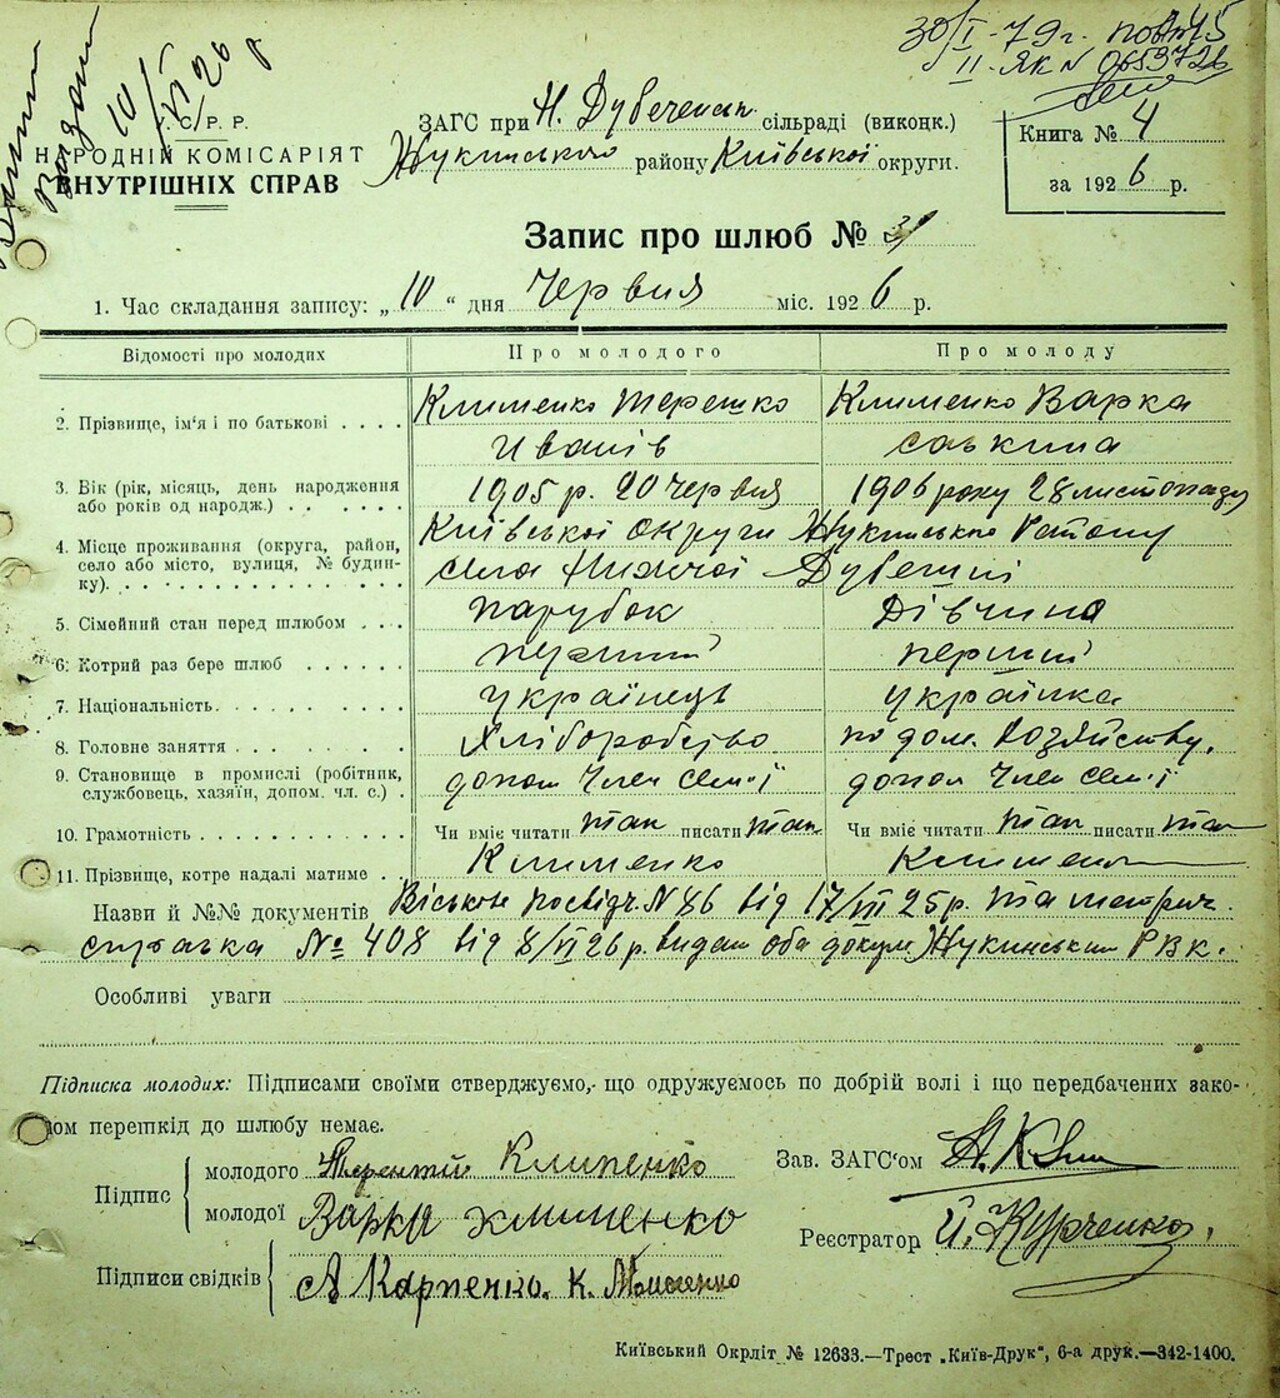 30/I-79г. повт
II-ЯК N 0653726
10/VI 26 р
У. С. Р. Р.
НАРОДНІЙ КОМІСАРІЯТ
ВНУТРІШНІХ СПРАВ
ЗАГС при Н. Дубеченськ сільраді (виконк.)
Жукинського району Київської округи.
Книга № 4
за 1926 р.
Запис про шлюб № 31
1. Час складання запису: „10“ дня Червня міс. 1926 р.
Відомості про молодих
Про молодого
Про молоду
2. Прізвище, ім'я і по батькові . . . .
Клименко Терешко
Иванів
Клименко Варка
саькина
3. Вік (рік, місяць, день народження
або років од народж.) . . . . . . .
1905 р. 20 червня
1906 року 28 листопаду
4. Місце проживання (округа, район,
село або місто, вулиця, № будин-
ку). . . . . . . . . . . . . .
Київської округи Жукинського Району
села Нижчої Дубешні
5. Сімейний стан перед шлюбом . . .
парубок
Дівчина
6. Котрий раз бере шлюб . . . . . .
перший
перший
7. Національність. . . . . . . . . .
українець
українка
8. Головне заняття . . . . . . . .
Хліборобство
по дом. хозяйству.
9. Становище в промислі (робітник,
службовець, хазяїн, допом. чл. с.) .
допом член сем'ї
допом член сем'ї
10. Грамотність . . . . . . . . . . .
Чи вміє читати так писати так
Чи вміє читати так писати так
11. Прізвище, котре надалі матиме . .
Клименко
Клименко
Назви й №№ документів Віськове посвідч. N 86 від 17/VII 25р. та метрич.
справка № 408 від 8/VI 26 р. видані оба докум. Жукинським РВК.
Особливі уваги
Підписка молодих: Підписами своїми стверджуємо,- що одружуємось по добрій волі і що передбачених зако-
ном перешкід до шлюбу немає.
Підпис
молодого Терентій Клименко
молодої Варка клименко
Підписи свідків
А Карпенко. К. Мойсенко
Зав. ЗАГС'ом
Реєстратор Й. Журченко.
Київський Окрліт № 12633.—Трест „Київ-Друк“, 6-а друк.—342-1400.